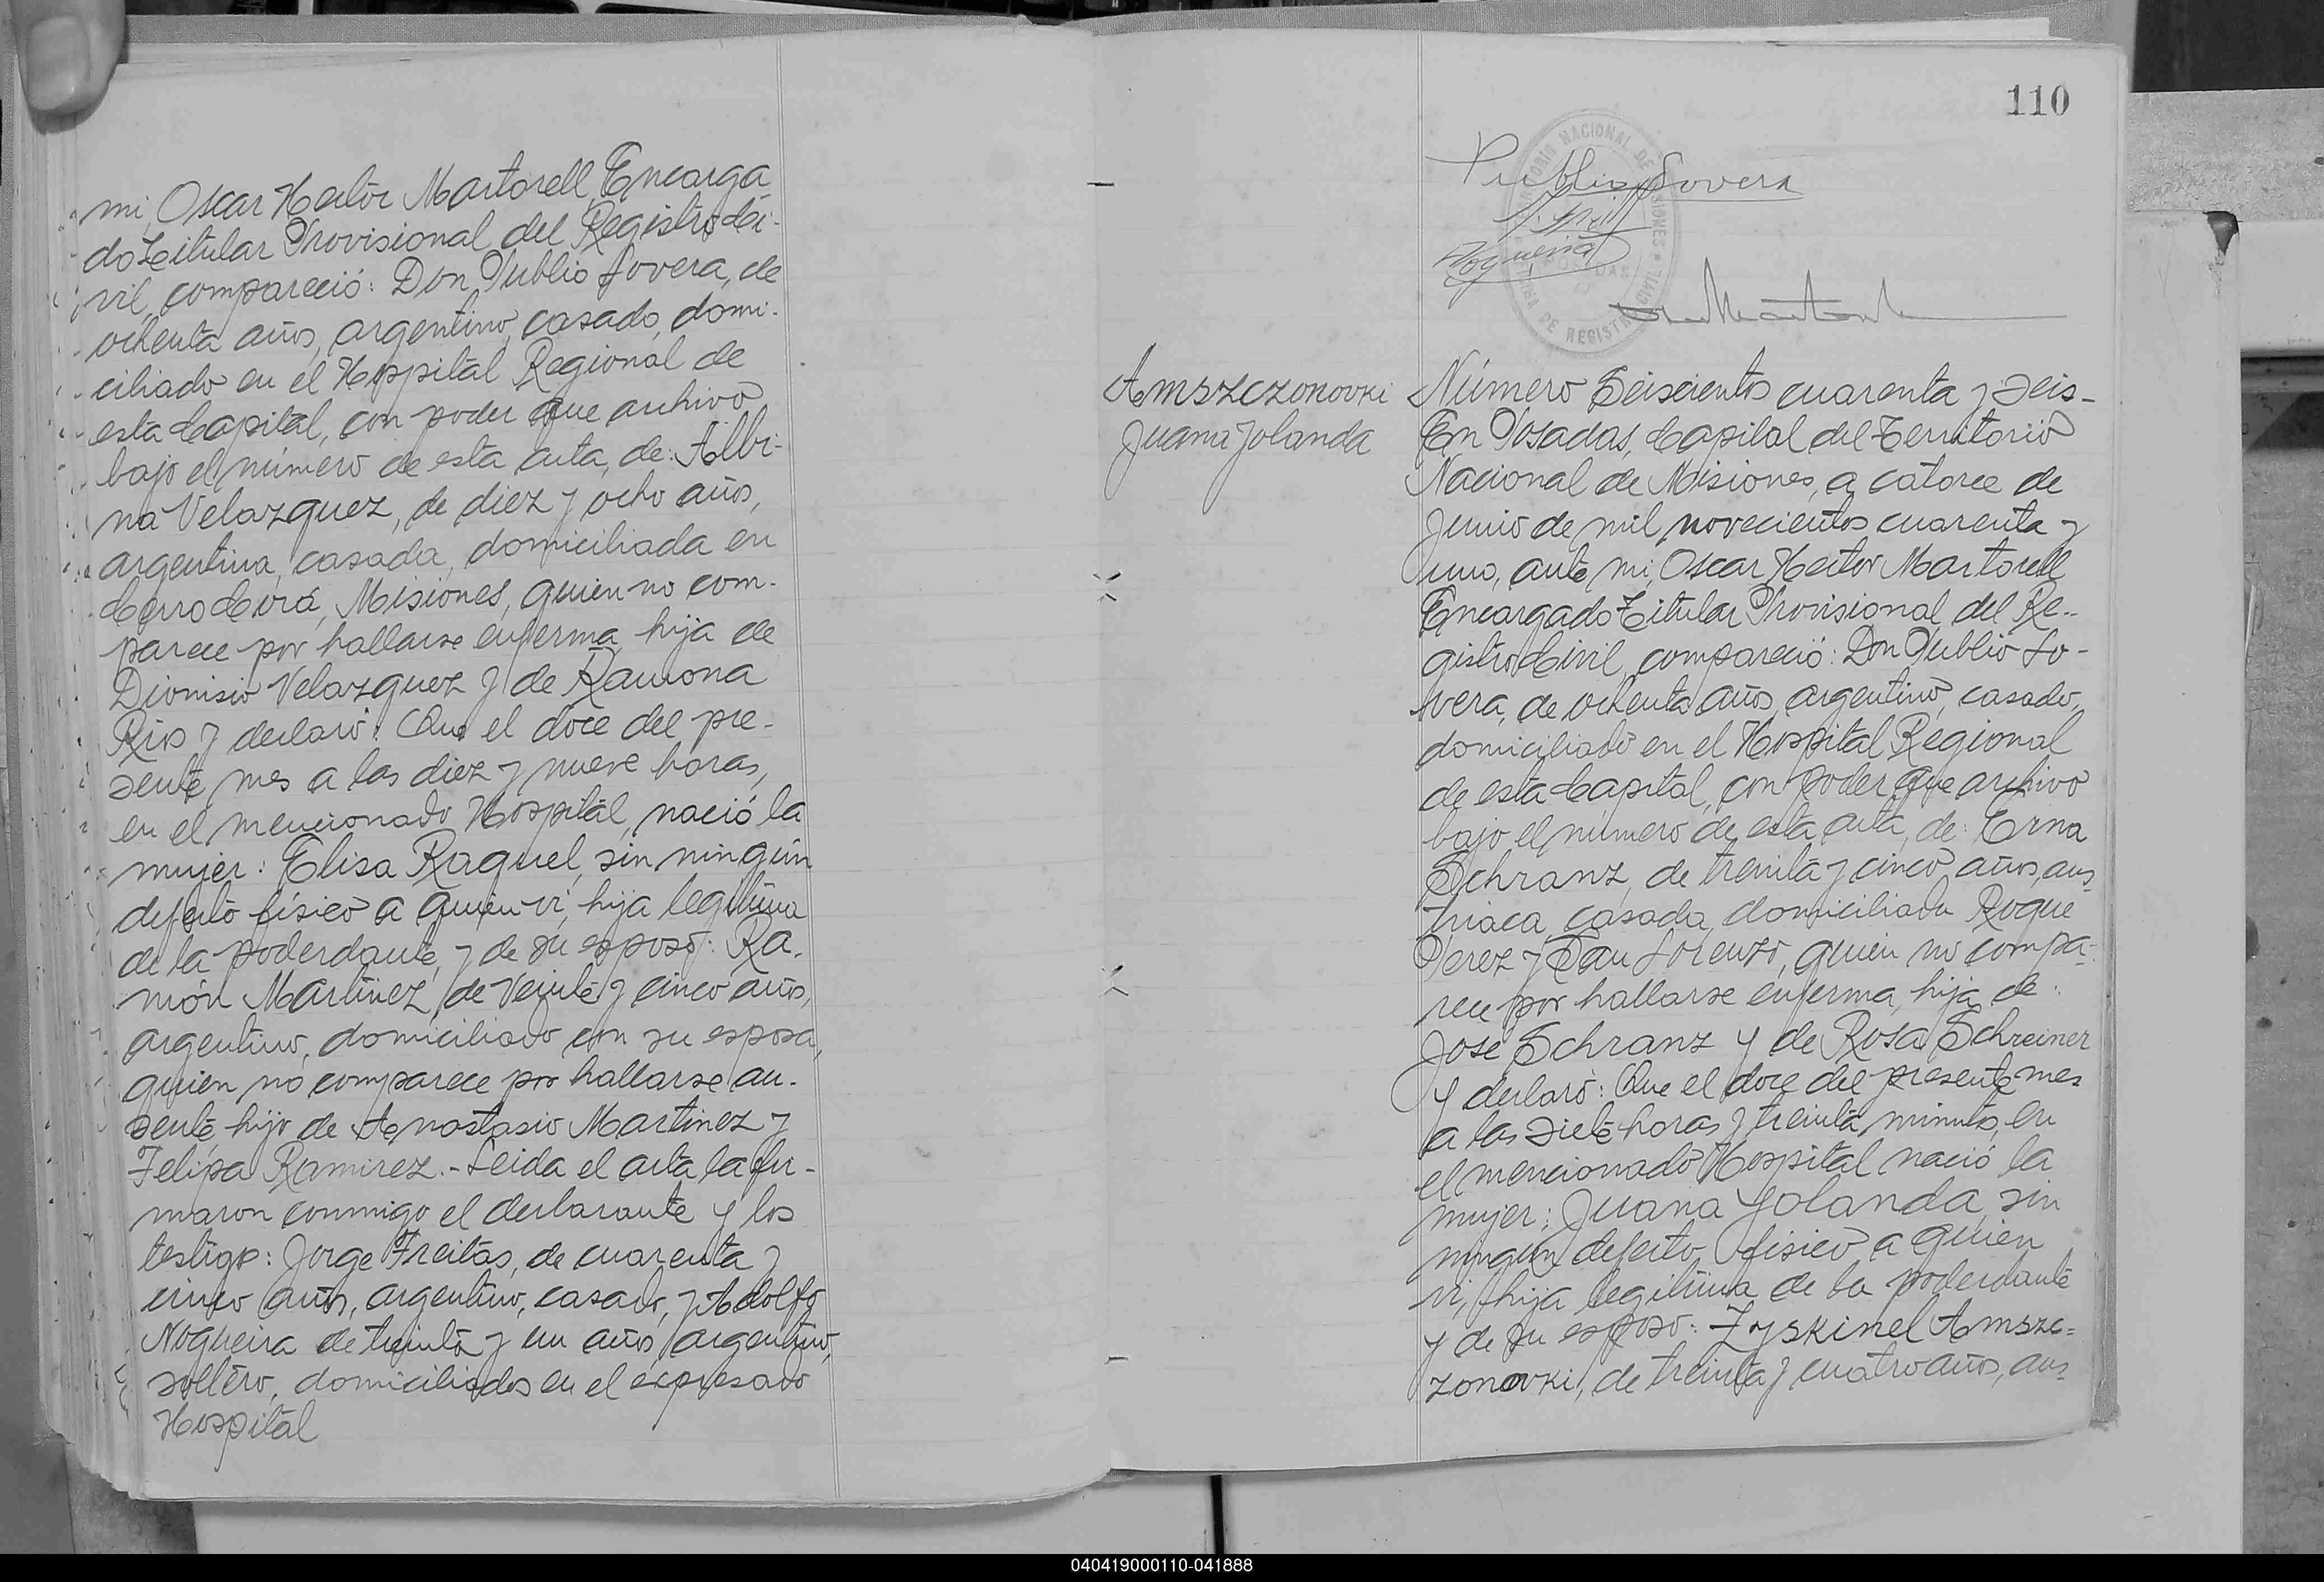 mi, Oscar Hector Martorell, Encarga
do Titular Provisional del Registro Ci-
vil, compareció: Don Publio Lovera, de
ochenta años, argentino, casado, domi-
ciliado en el Hospital Regional de
esta Capital, con poder que archivo
bajo el número de esta acta, de: Albi-
na Velazquez, de diez y ocho años,
argentina, casada, domiciliada en
Cerro Corá, Misiones, quien no com-
parece por hallarse enferma, hija de
Dionisio Velazquez y de Ramona
Rios y declaró: Que el doce del pre-
sente mes a las diez y nueve horas,
en el mencionado Hospital, nació la
mujer: Elisa Raquel, sin ningún
defecto físico a quien vi, hija legítima
de la poderdante, y de su esposo: Ra-
món Martinez, de veinte y cinco años,
argentino, domiciliado con su esposa,
quien no comparece por hallarse au-
sente, hijo de Anastasio Martinez y
Felipa Ramirez.- Leida el acta la fir-
maron conmigo el declarante y los
testigos: Jorge Freitas, de cuarenta y
cinco años, argentino, casado, y Adolfo
Nogueira de treinta y un años, argentino,
soltero, domiciliados en el expresado
Hospital
110
Publio Lovera
Nogueira
REGISTRO
Amszczonovki
Juana Yolanda
Número Seiscientos cuarenta y seis-
En Posadas, Capital del Territorio
Nacional de Misiones, a catorce de
Junio de mil novecientos cuarenta y
uno, ante mi, Oscar Hector Martorell
Encargado Titular Provisional del Re-
gistro Civil, compareció: Don Publio Lo-
vera, de ochenta años, argentino, casado,
domiciliado en el Hospital Regional
de esta Capital, con poder que archivo
bajo el número de esta acta, de: Erna
Schranz, de treinta y cinco años, aus
triaca, casada, domiciliada Roque
Perez y San Lorenzo, quien no compa-
rece por hallarse enferma, hija de
José Schranz y de Rosa Schreiner
y declaró: Que el doce del presente mes
a las siete horas y treinta minutos, en
el mencionado Hospital nació la
mujer: Juana Yolanda, sin
ningún defecto físico a quien
vi, hija legítima de la poderdante
y de su esposo: Zyskinel Amszc=
zonovki, de treinta y cuatro años, aus=
040419000110-041888